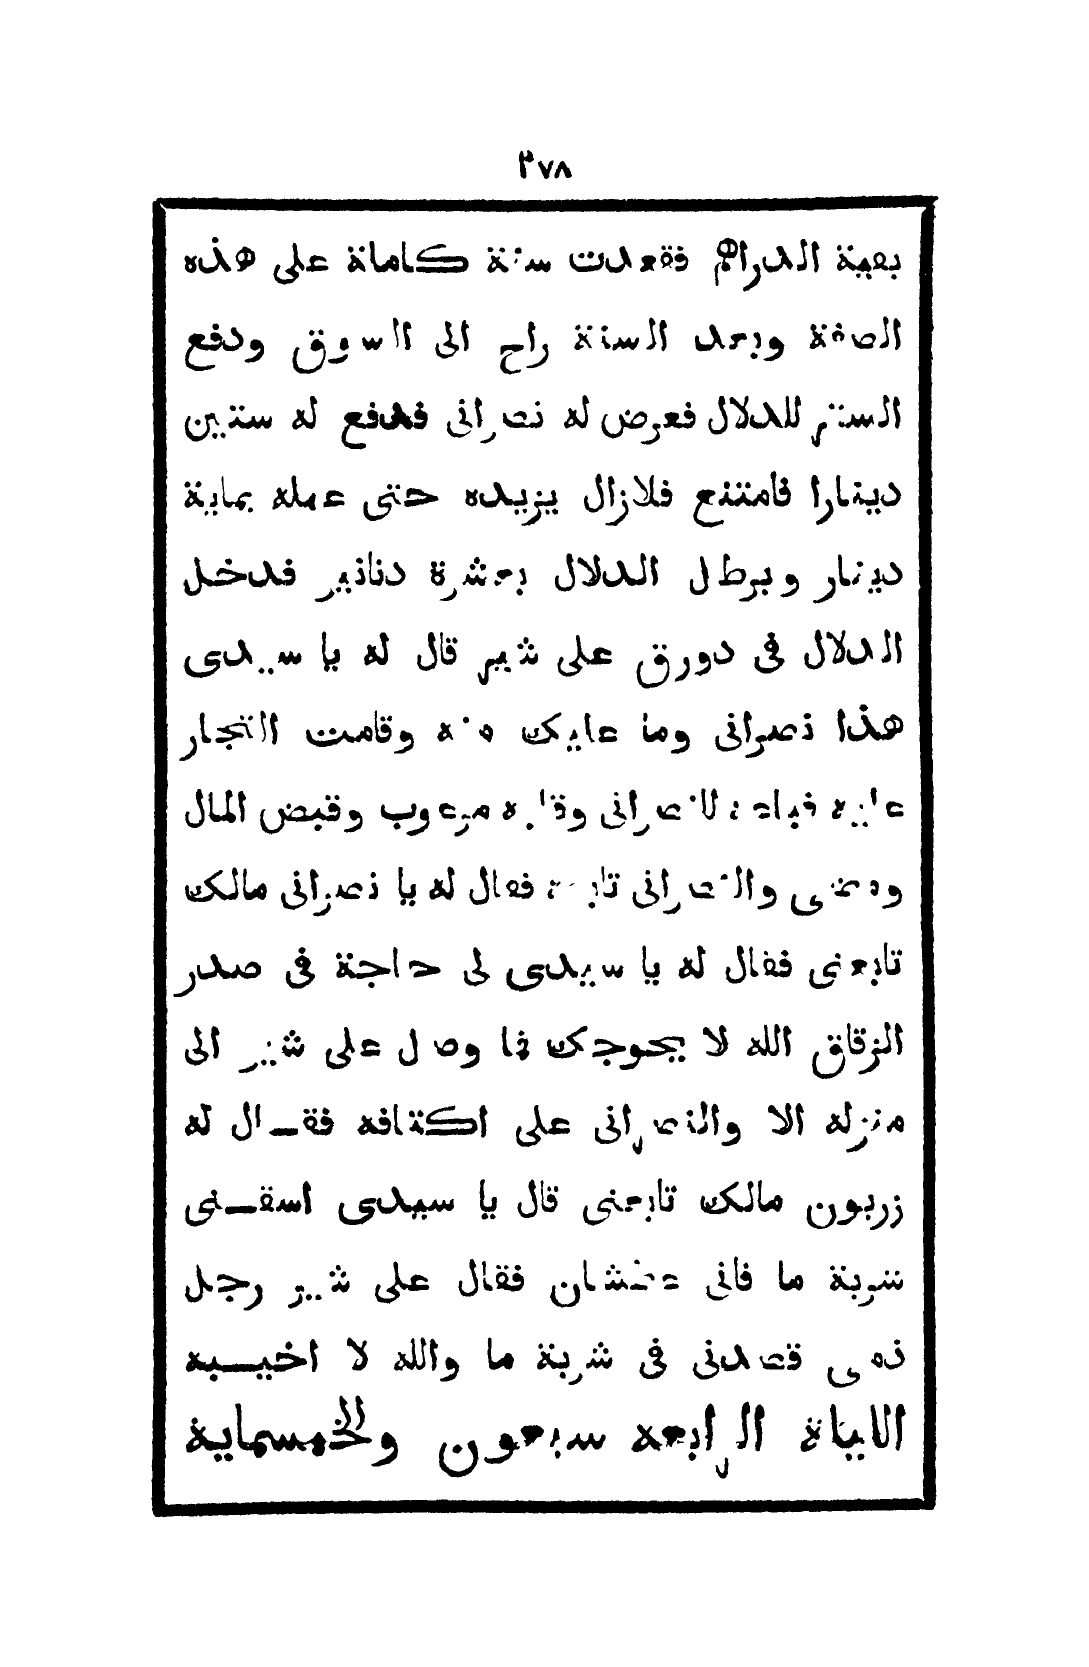 ٣٧٨
بقية الدراهم فقعدت سنة كاملة على هذه
الصفة وبعد السنة راح الى السوق ودفع
الستر للدلال فعرض له نصرانى فدفع له ستين
دينارا فامتنع فلازال يزيده حتى عمله بماية
دينار وبرطل الدلال بعشرة دنانير فدخل
الدلال فى دورق على شير قال له يا سيدى
هذا نصرانى وما عليك منه وقامت التجار
عليه فباعه للنصرانى وقلبه مرعوب وقبض المال
ومضى والنصرانى تابعه فقال له يا نصرانى مالك
تابعنى فقال له يا سيدى لى حاجة فى صدر
الزقاق الله لا يحوجك فما وصل على شير الى
منزله الا والنصرانى على اكتافه فقـال له
زربون مالك تابعنى قال يا سيدى اسقـنى
شربة ما فانى عطشان فقال على شير رجل
ذمى قصدنى فى شربة ما والله لا اخيـبه
الليلة الرابعه سبعون والخمسماية